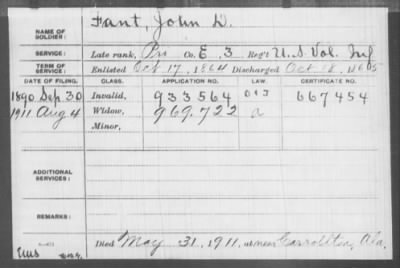 NAME OF SOLDIER: Fant, John D.
SERVICE: Late rank, Pri Co. E. 3 Reg't U. S Vol. Inf
TERM OF SERVICE: Enlisted Oct 17, 1864 Discharged Oct
DATE OF FILING. APPLICATION NO. LAW. CERTIFICATE NO.
1890 Sep. 30 Invalid, 933564 667454
1911 Aug 4 Widow, 969.722 a
Minor,
ADDITIONAL SERVICES:
REMARKS:
Died May 31, 1911, at near Carrollton, Ala.